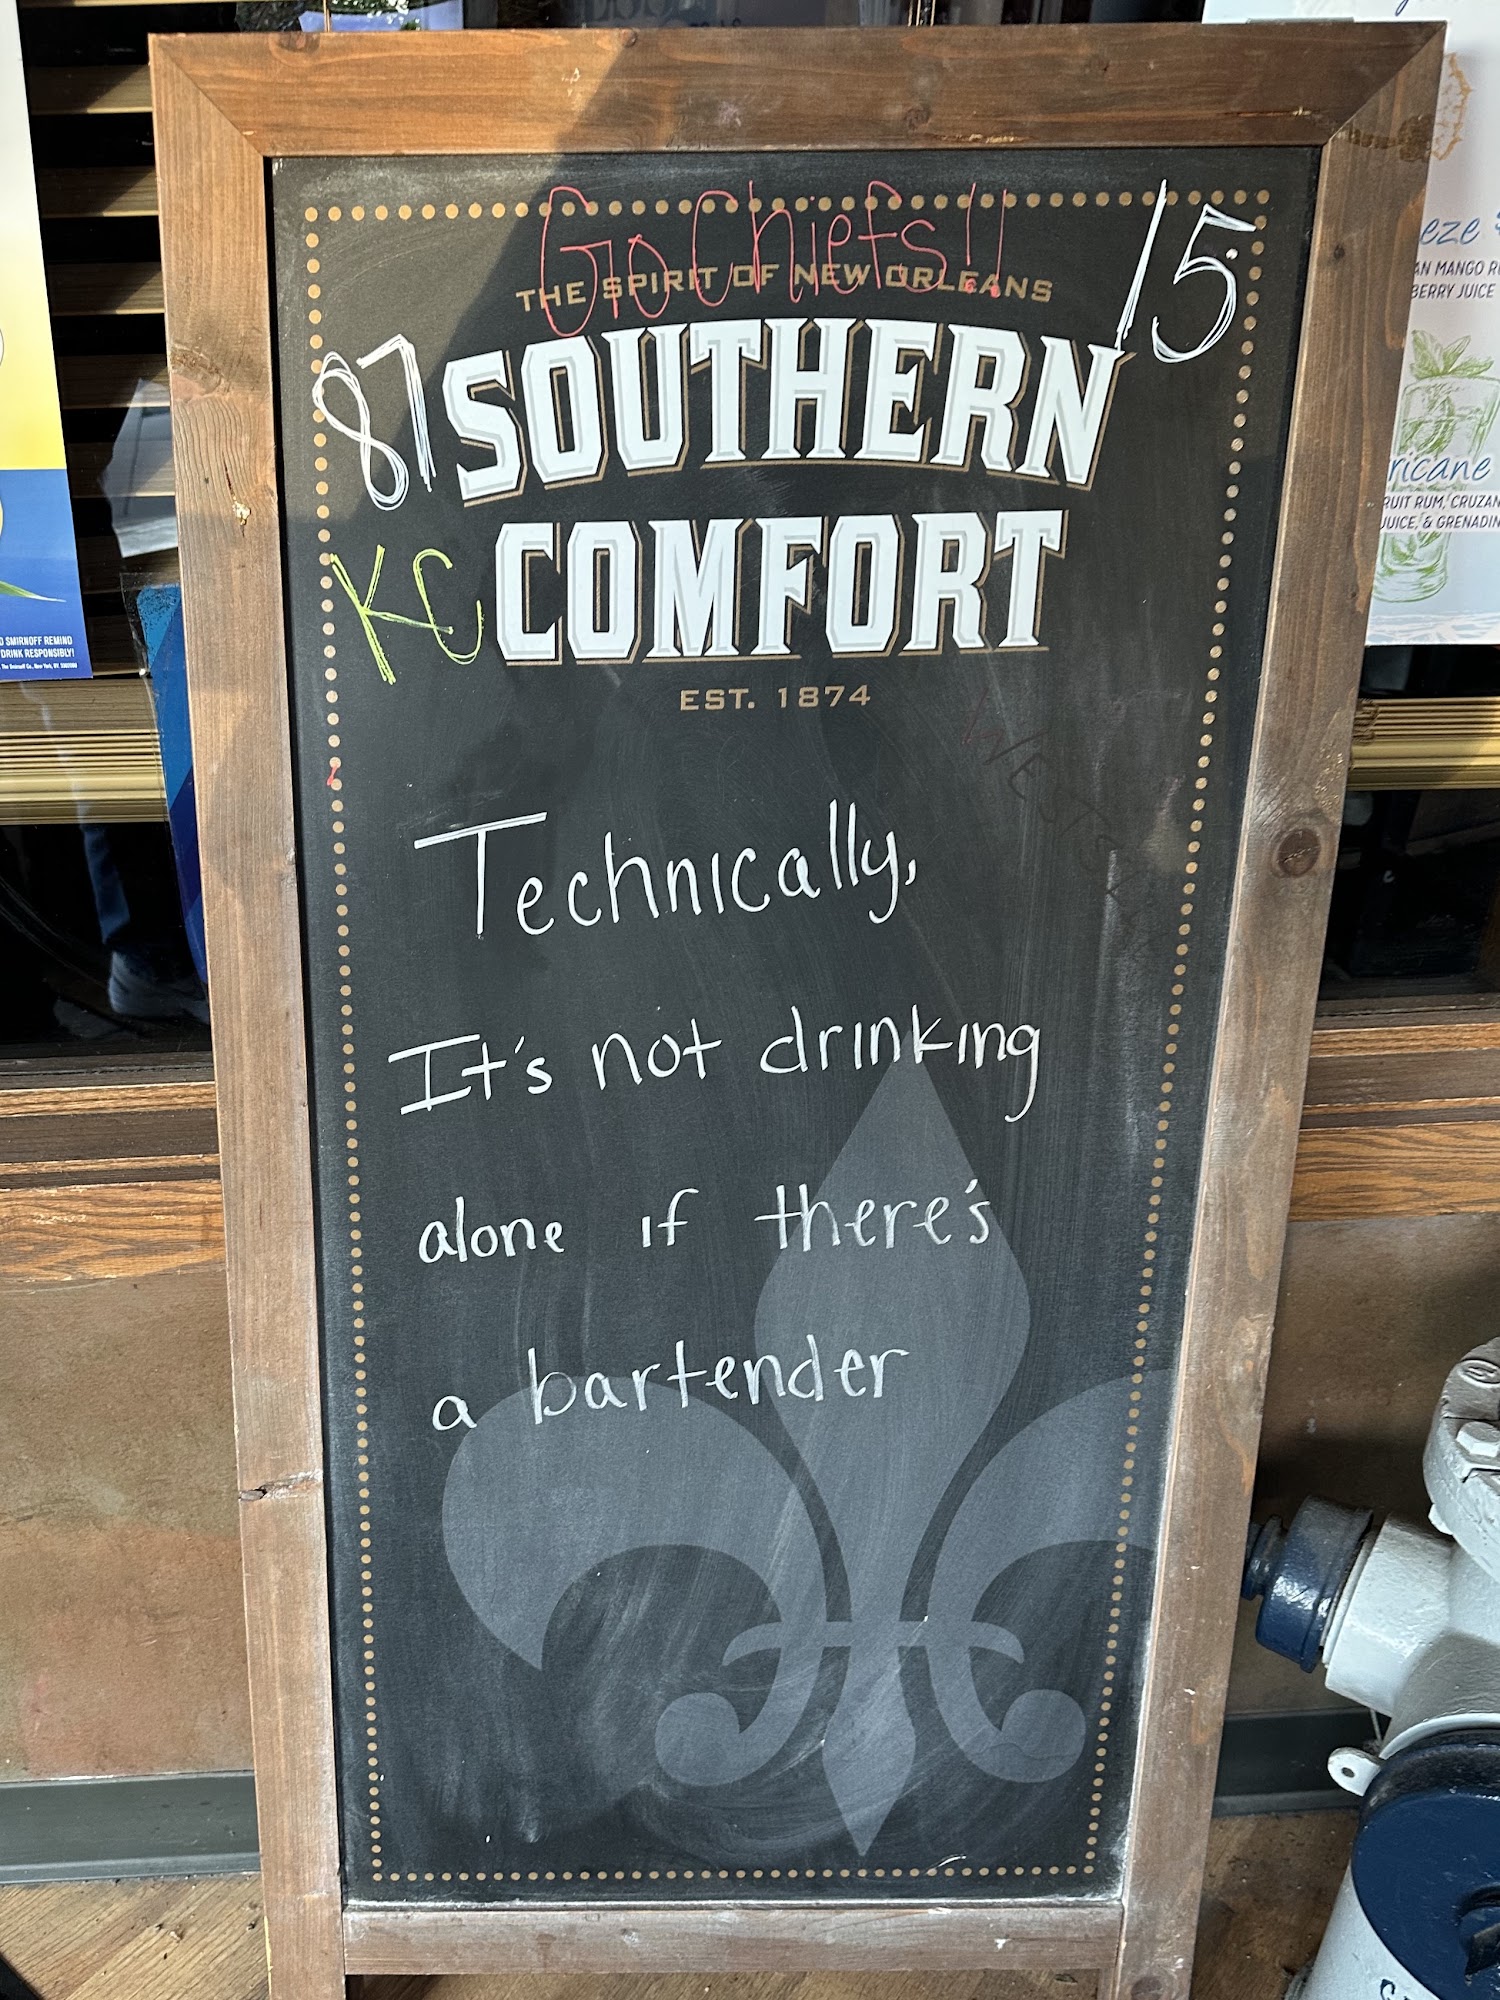 Go Chiefs!!
THE SPIRIT OF NEW ORLEANS
15
87
SOUTHERN
COMFORT
KC
EST. 1874
Technically,
It's not drinking
alone if there's
a bartender
eze
AN MANGO R
BERRY JUICE
ricane
RUIT RUM, CRUZAN
JUICE, & GRENADIN
SMIRNOFF REMIND
DRINK RESPONSIBLY!